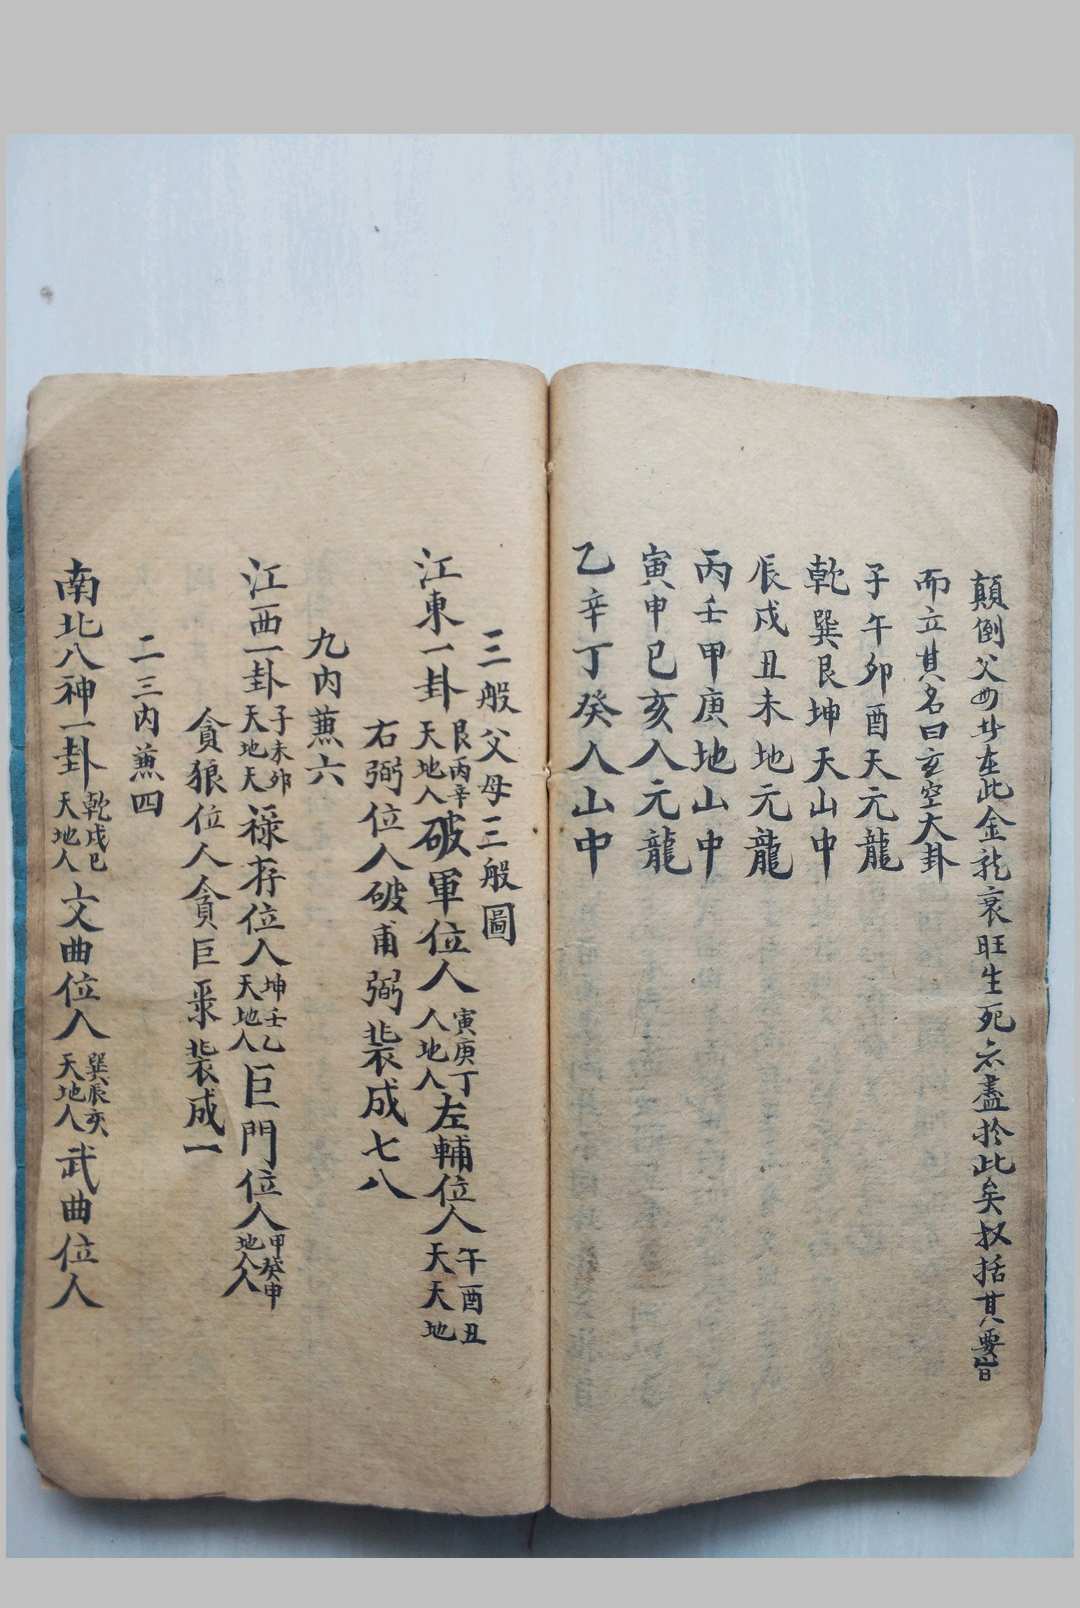 顛倒父母廾在此金龙衰旺生死亦盡於此矣扠括其要旨
而立其名曰玄空大卦
子午卯酉天元龍
乾巽艮坤天山中
辰戍丑未地元龍
丙壬甲庚地山中
寅申巳亥人元龍
乙辛丁癸人山中
三般父母三般圖
江東一卦艮丙辛天地人破軍位人寅庚丁人地人左輔位人午酉丑天天地
右弼位人破甫弼裝成七八
九內蕪六
江西一卦子未卯天地天祿存位人坤壬乙天地人巨門位人甲癸申地人人
貪狼位人貪巨彔裝成一
二三內蕪四
南北八神一卦乾戌巳天地人文曲位人巽辰亥天地人武曲位人